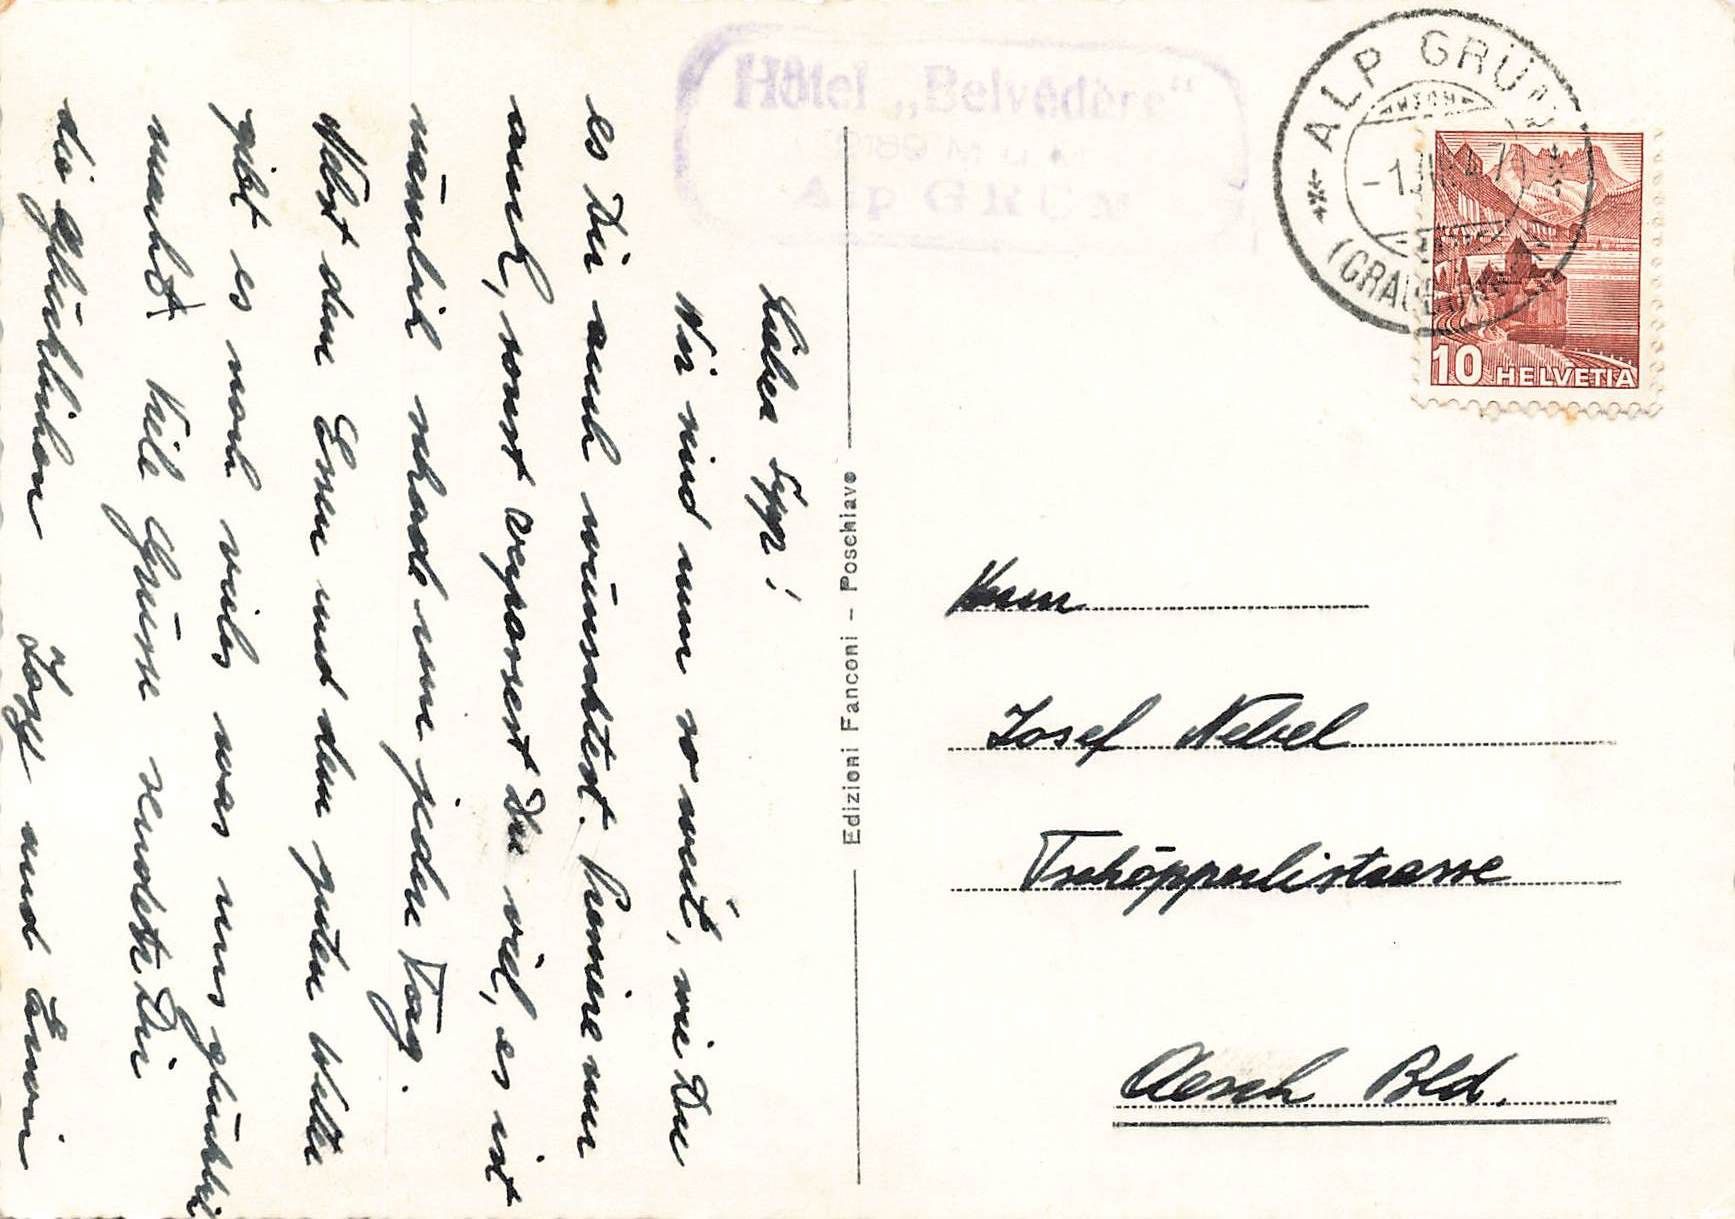 Hôtel „Belvédère"
Alp GRÜM
ALP GRÜM
(GRAUBÜNDEN)
10 HELVETIA
Lieber Sepp!
Wir sind nun so weit, wie Du
es Dir auch wünschtest. komme nur
auch, sonst verpassest Du viel, es ist
nämlich schade um jeden Tag.
Nebst dem Essen und dem guten Wetter
gibt es noch vieles was uns glücklich
macht. Viele Grüsse senden Dir
die Glücklichen Josy und Erwin
Edizioni Fanconi - Poschiavo
Herrn
Josef Nebel
Tschöpperlistrasse
Aesch Bld.